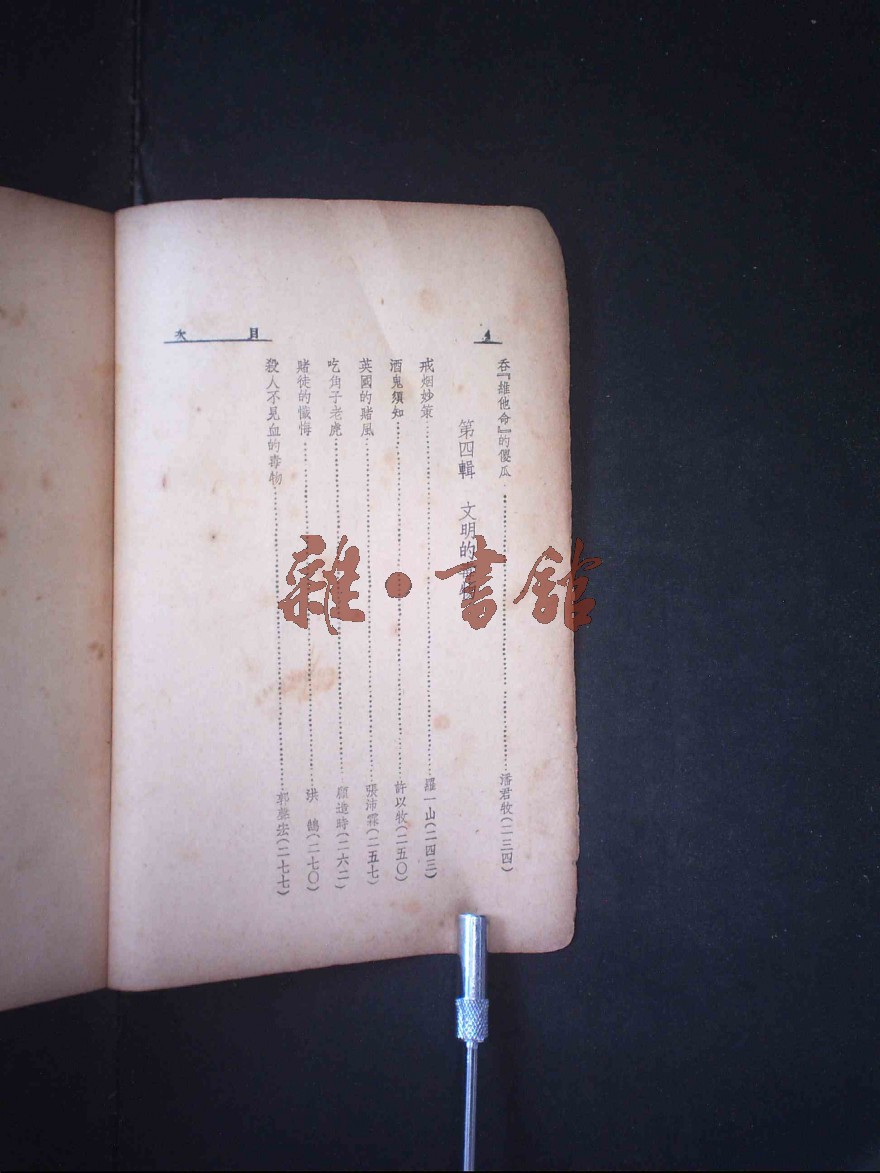 4
吞『維他命』的傻瓜………潘君牧(二三四)
第四輯　文明的
戒烟妙策………羅一山(二四三)
酒鬼須知………許以牧(二五〇)
英國的賭風………張沛霖(二五七)
吃角子老虎………顧道時(二六二)
賭徒的懺悔………洪　鵠(二七〇)
殺人不見血的毒物………郭(二七七)
目次
雜·書館